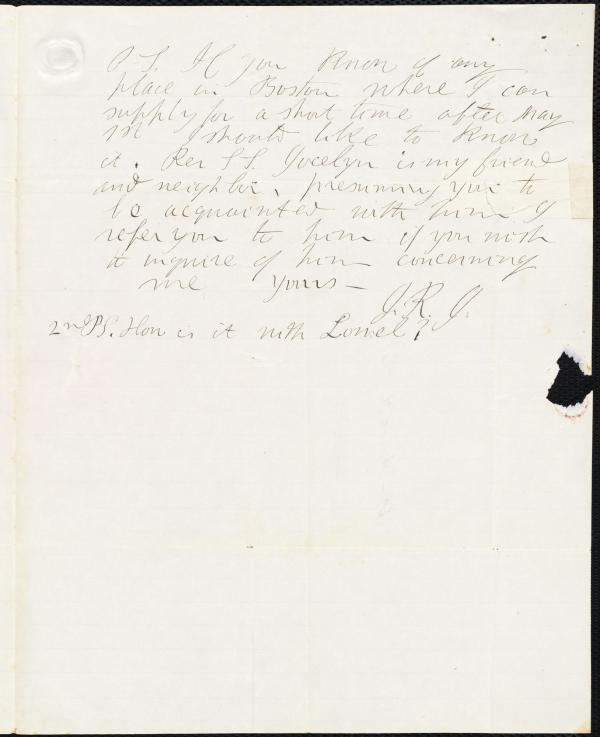 P.S. If you know of any
place in Boston where I can
supply for a short time after May
1st I should like to know
it. Rev S.S. Jocelyn is my friend
and neighbor, presuming you to
be acquainted with him I
refer you to him if you wish
to inquire of him concerning
me Yours —
J. R. J.
2nd P.S. How is it with Lowel?